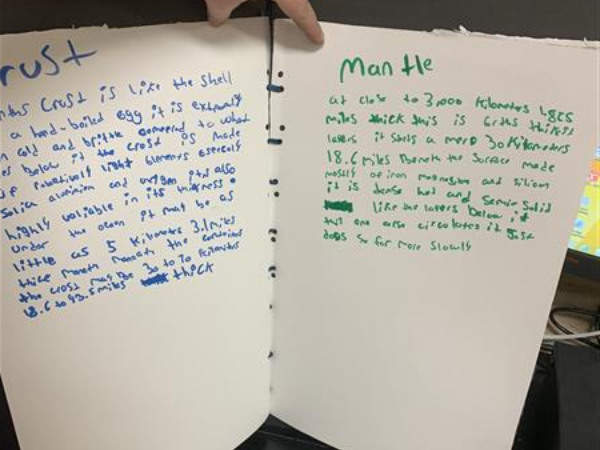 rust
crust is like the shell
a hard-boiled egg it is extremely
cold and brittle compared to what
below it the crost is made
of light elements
silica aluminion and oxygen its also
highly valiable in its thickness.
under the ocean it may be as
little as 5 kilometers 3.1 miles
thick the continines
the crost may be 30 to 70 kilometers
18.6 to 43.5 miles thick
Mantle
at close to 3,000 kilometers 1,865
miles thick this is erths thickest
layer it starts a mere 30 kilometers
18.6 miles beneth the surface made
mostly of iron and silicon
it is dense hot and semi solid
like the layers below it
this one also circulates it just
does so far more slowly